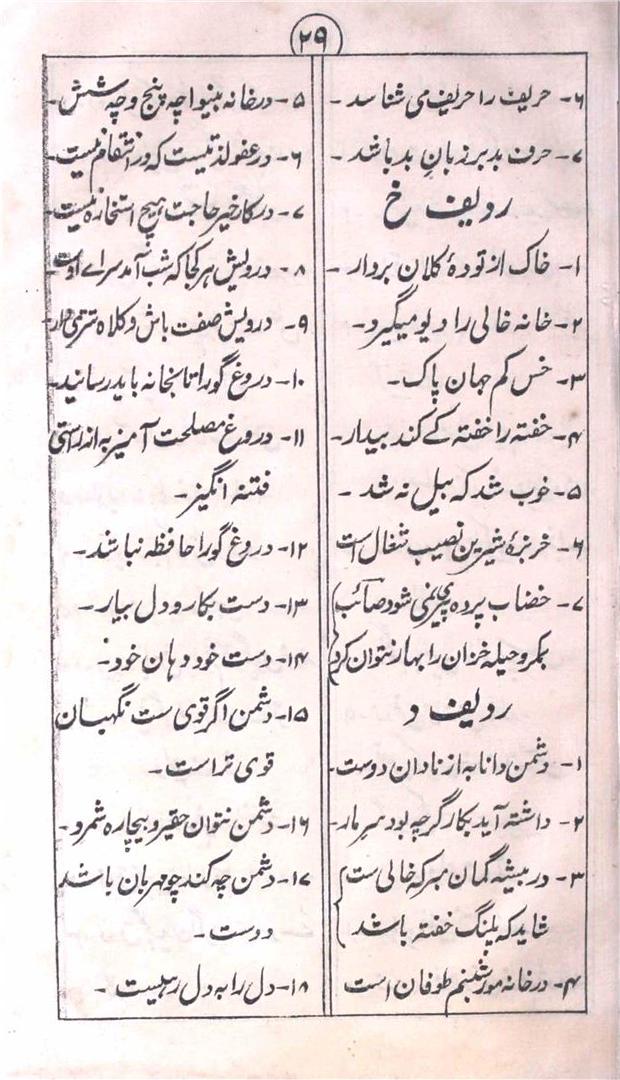 ۲۹
۶- حریف را حریف می شناسد -
۷- حرف بد بر زبانِ بد باشد -
ردیف خ
۱- خاک از تودۂ کلان بردار -
۲- خانہ خالی را دیو میگیرد -
۳- خس کم جہان پاک -
۴- خفتہ را خفتہ کے کند بیدار -
۵- خوب شد کہ بیل نہ شد -
۶- خربزۂ شیرین نصیب شغال است
۷- خضاب پردہ پیری نمی شود صائب
بمکر و حیلہ خزان را بہار نتوان کرد
ردیف د
۱- دشمن دانا بہ از نادان دوست -
۲- داشتہ آید بکار گرچہ بود سر مار -
۳- در بیشہ گمان مبر کہ خالی ست
شاید کہ پلنگ خفتہ باشد
۴- در خانہ مور شبنم طوفان است
۵- در خانہ بینوا چہ پنج و چہ شش -
۶- در عفو لذتیست کہ در انتقام نیست -
۷- در کار خیر حاجت ہیچ استخارہ نیست -
۸- درویش ہر کجا کہ شب آمد سراے اوست
۹- درویش صفت باش و کلاہ تتری دار
۱۰- دروغ گو را تا بخانہ باید رسانید -
۱۱- دروغ مصلحت آمیز بہ از راستی
فتنہ انگیز -
۱۲- دروغ گو را حافظہ نباشد -
۱۳- دست بکار و دل بیار -
۱۴- دست خود دہان خود -
۱۵- دشمن اگر قوی ست نگہبان
قوی تر است -
۱۶- دشمن نتوان حقیر و بیچارہ شمرد -
۱۷- دشمن چہ کند چو مہربان باشد
دوست -
۱۸- دل را بہ دل رہیست -